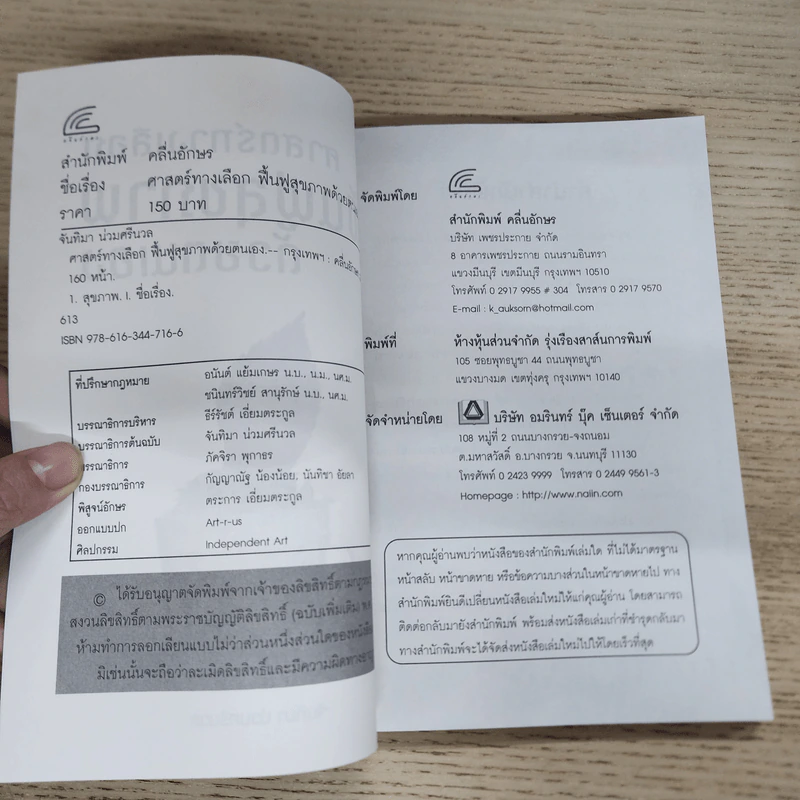 สำนักพิมพ์ คลื่นอักษร
ชื่อเรื่อง ศาสตร์ทางเลือก ฟื้นฟูสุขภาพด้วยตนเอง
ราคา 150 บาท
จันทิมา น่วมศรีนวล
ศาสตร์ทางเลือก ฟื้นฟูสุขภาพด้วยตนเอง.-- กรุงเทพฯ : คลื่นอักษร
160 หน้า.
1. สุขภาพ. I. ชื่อเรื่อง.
613
ISBN 978-616-344-716-6
ที่ปรึกษากฎหมาย อนันต์ แย้มเกษร น.บ., น.ม., นศ.ม.
ชนินทร์วิชย์ สานุรักษ์ น.บ., นศ.ม.
บรรณาธิการบริหาร ธีร์รัชต์ เอี่ยมตระกูล
บรรณาธิการต้นฉบับ จันทิมา น่วมศรีนวล
บรรณาธิการ ภัคจิรา พุกาธร
กองบรรณาธิการ กัญญาณัฐ น้องน้อย, นันทิชา อัยลา
พิสูจน์อักษร ตระการ เอี่ยมตระกูล
ออกแบบปก Art-r-us
ศิลปกรรม Independent Art
© ได้รับอนุญาตจัดพิมพ์จากเจ้าของลิขสิทธิ์ตามกฎหมาย
สงวนลิขสิทธิ์ตามพระราชบัญญัติลิขสิทธิ์ (ฉบับเพิ่มเติม)
ห้ามทำการลอกเลียนแบบไม่ว่าส่วนหนึ่งส่วนใดของหนังสือ
มิเช่นนั้นจะถือว่าละเมิดลิขสิทธิ์และมีความผิดทาง
จัดพิมพ์โดย
สำนักพิมพ์ คลื่นอักษร
บริษัท เพชรประกาย จำกัด
8 อาคารเพชรประกาย ถนนรามอินทรา
แขวงมีนบุรี เขตมีนบุรี กรุงเทพฯ 10510
โทรศัพท์ 0 2917 9955 # 304 โทรสาร 0 2917 9570
E-mail : k_auksorn@hotmail.com
พิมพ์ที่ ห้างหุ้นส่วนจำกัด รุ่งเรืองสาส์นการพิมพ์
105 ซอยพุทธบูชา 44 ถนนพุทธบูชา
แขวงบางมด เขตทุ่งครุ กรุงเทพฯ 10140
จัดจำหน่ายโดย บริษัท อมรินทร์ บุ๊ค เซ็นเตอร์ จำกัด
108 หมู่ที่ 2 ถนนบางกรวย-จงถนอม
ต.มหาสวัสดิ์ อ.บางกรวย จ.นนทบุรี 11130
โทรศัพท์ 0 2423 9999 โทรสาร 0 2449 9561-3
Homepage : http://www.naiin.com
หากคุณผู้อ่านพบว่าหนังสือของสำนักพิมพ์เล่มใด ที่ไม่ได้มาตรฐาน
หน้าสลับ หน้าขาดหาย หรือข้อความบางส่วนในหน้าขาดหายไป ทาง
สำนักพิมพ์ยินดีเปลี่ยนหนังสือเล่มใหม่ให้แก่คุณผู้อ่าน โดยสามารถ
ติดต่อกลับมายังสำนักพิมพ์ พร้อมส่งหนังสือเล่มเก่าที่ชำรุดกลับมา
ทางสำนักพิมพ์จะได้จัดส่งหนังสือเล่มใหม่ไปให้โดยเร็วที่สุด